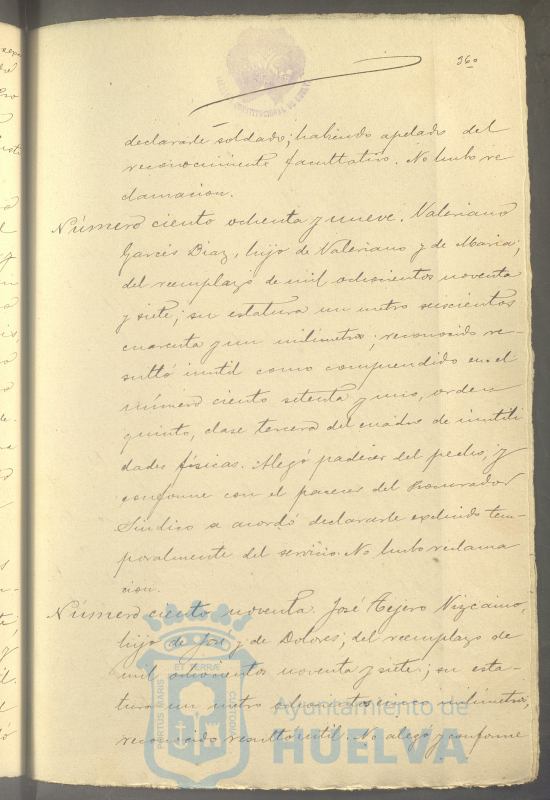 36º
declararle soldado; habiendo apelado del
reconocimiento facultativo. No hubo re
clamacion.
Número ciento ochenta y nueve. Valeriano
Garcés Diaz, hijo de Valeriano y de Maria;
del reemplazo de mil ochocientos noventa
y siete; su estatura un metro seiscientos
cuarenta y un milimetros; reconocido re-
sultó inutil como comprendido en el
número ciento setenta y uno, orden
quinto, clase tercera del cuadro de inutili
dades físicas. Alegó padecer del pecho, y
conforme con el parecer del Procurador
Síndico se acordó declararle excluido tem-
poralmente del servicio. No hubo reclama
cion.
Número ciento noventa. José Tejero Vizcaino,
hijo de José y de Dolores; del reemplazo de
mil ochocientos noventa y siete; su esta-
tura un metro milimetros,
reconocido resultó util. No alegó y conforme
PORTUS MARIS
ET TERRÆ
CUSTODIA
Ayuntamiento de
HUELVA